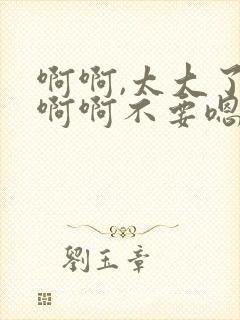 啊啊,太大了
啊啊不要嗯
劉玉章